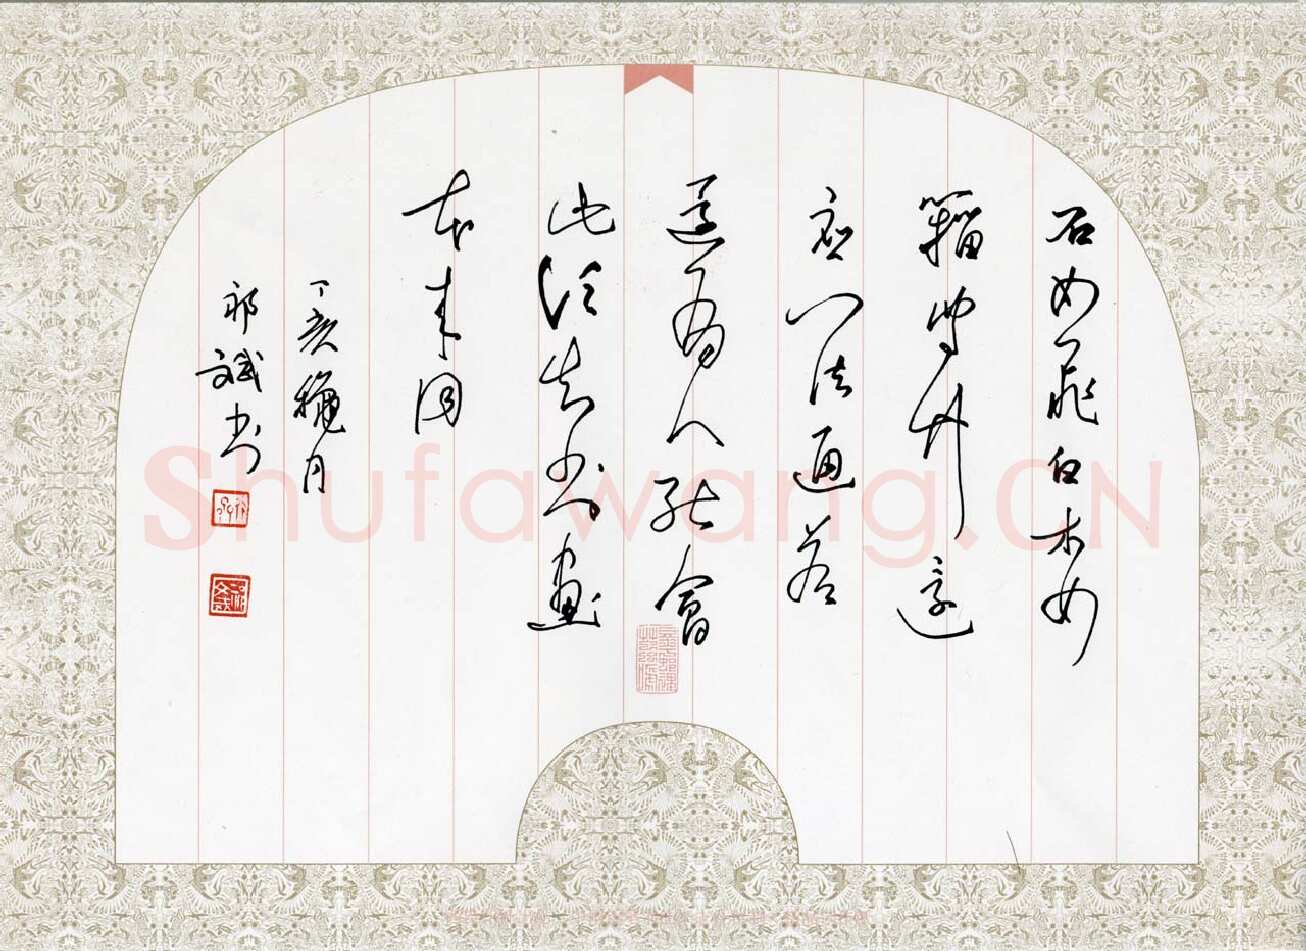 石如飛白木如
籀寫竹還
應八法通若
還有人能會
此須知書畫
本來同
丁亥穐月
祁斌书
Shufawang.CN